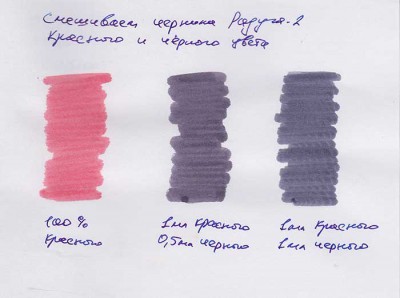 Смешиваем чернила Радуга-2
Красного и чёрного цвета
100%
Красного
1мл Красного
0,5мл чёрного
1мл Красного
1мл чёрного